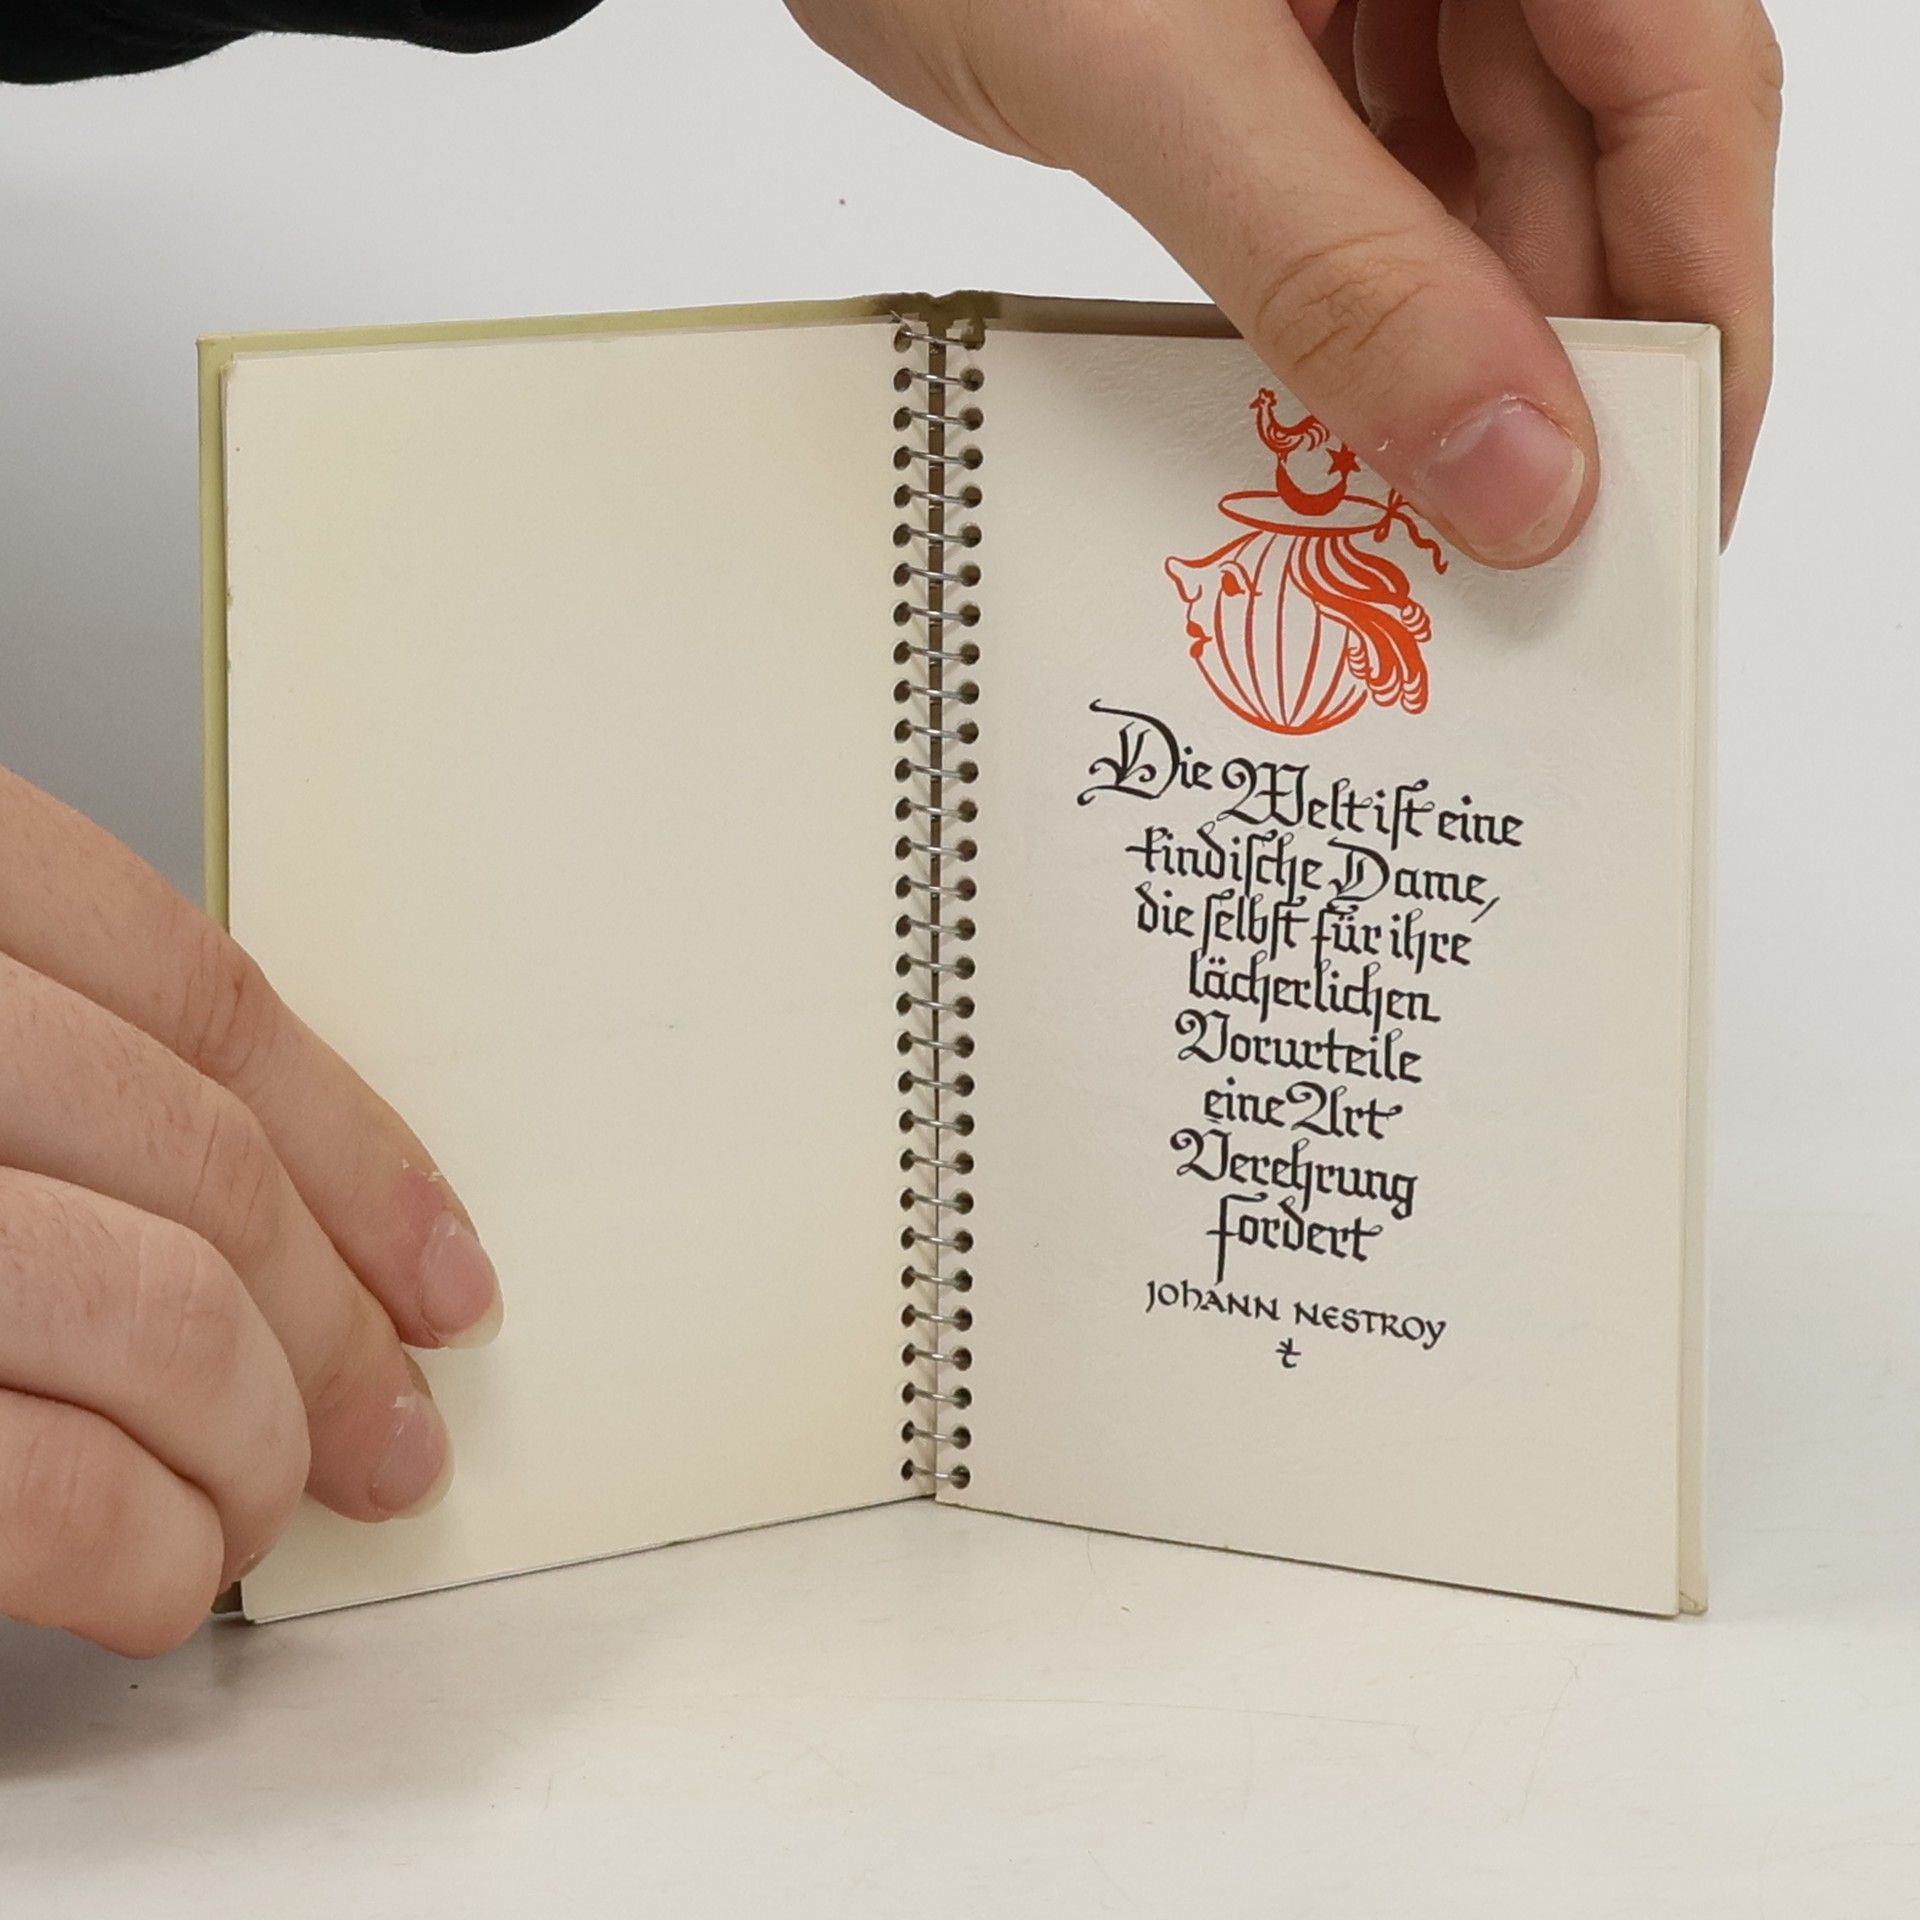 Die Welt iſt eine
kindiſche Dame,
die ſelbſt für ihre
lächerlichen
Vorurteile
eine Art
Verehrung
fordert
JOHANN NESTROY